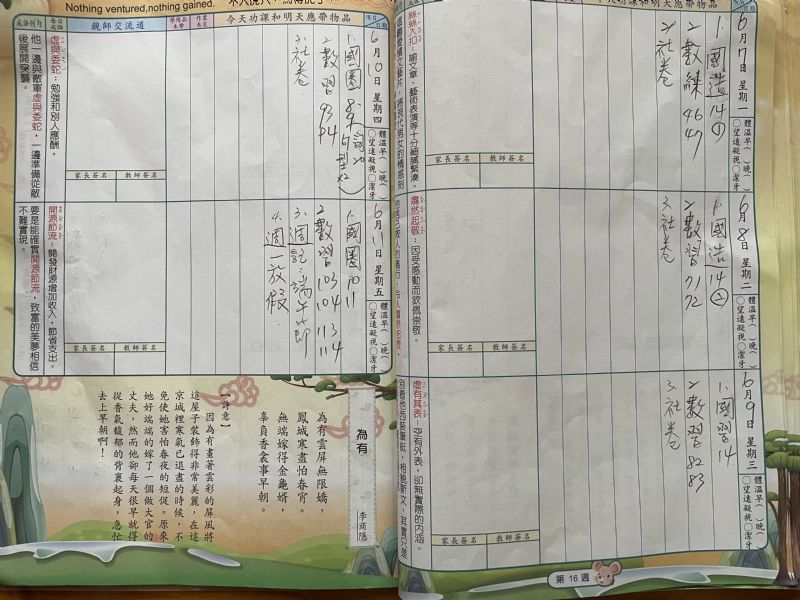 6月7日 星期一
體溫早( )晚( )
○望遠凝視○潔牙
1.國造14①
2.數練46 47
3.社卷
家長簽名
教師簽名
絲絲入扣：喻文章、藝術表演等十分細膩緊湊。
6月8日 星期二
體溫早( )晚( )
○望遠凝視○潔牙
1.國造14②
2.數習71 72
3.社卷
家長簽名
教師簽名
肅然起敬：因受感動而欽佩崇敬。
6月9日 星期三
體溫早( )晚( )
○望遠凝視○潔牙
1.國習14
2.數習82 83
3.社卷
家長簽名
教師簽名
虛有其表：空有外表，卻無實際的內涵。
第16週
Nothing ventured,nothing gained.
成語例句
每日成語
親師交流道
學用品未帶
作業未交
今天功課和明天應帶物品
項目
日期
今天功課和明天應帶物品
6月10日 星期四
體溫早( )晚( )
○望遠凝視○潔牙
2.數習93 94
3.社卷
家長簽名
教師簽名
虛與委蛇：勉強和別人應酬。
他一邊與敵軍虛與委蛇，一邊準備從敵
後展開突襲。
6月11日 星期五
體溫早( )晚( )
○望遠凝視○潔牙
1.國圈10 11
2.數習103 104 113 114
3.週記：端午節
4.週一放假
家長簽名
教師簽名
開源節流：開發財源增加收入，節省支出。
要是能確實開源節流，致富的美夢相信
不難實現。
為有
李商隱
為有雲屏無限嬌，
鳳城寒盡怕春宵。
無端嫁得金龜婿，
辜負香衾事早朝。
【詩意】
因為有畫著雲彩的屏風將
這屋子裝飾得非常美麗，在這
京城裡寒氣已退盡的時候，不
免使她害怕春夜的短促。原來
她好端端的嫁了一個做大官的
丈夫，然而他卻每天很早就得
從香氣馥郁的背裏起身，急忙
去上早朝啊！